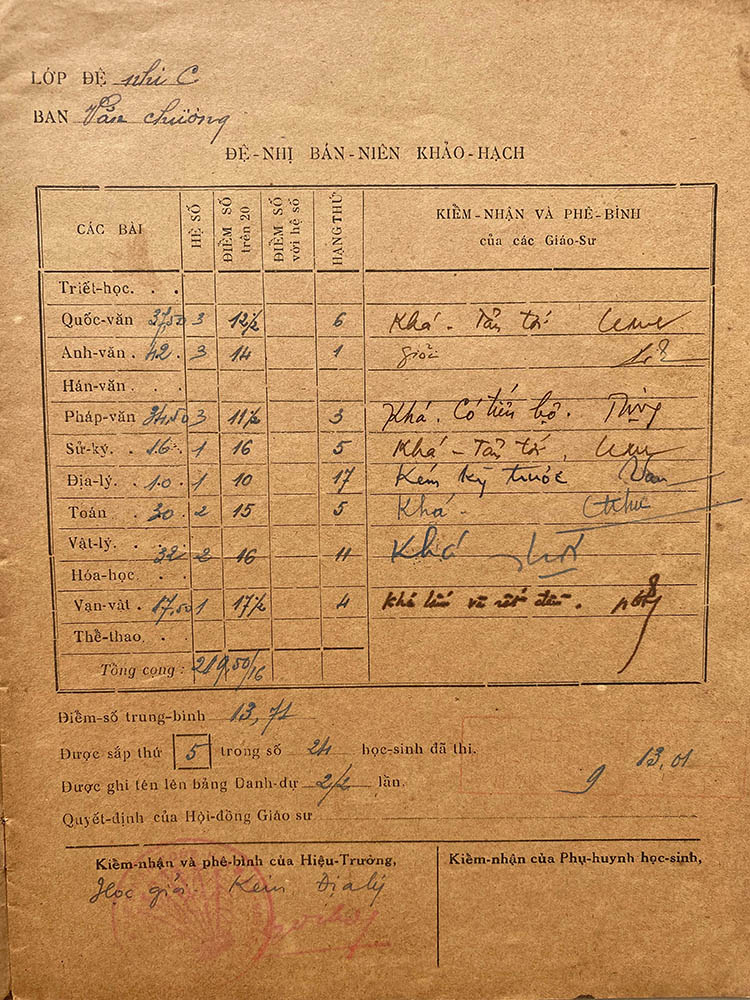 LỚP ĐỆ nhị C
BAN Văn chương
ĐỆ-NHỊ BÁN-NIÊN KHẢO-HẠCH
CÁC BÀI HỆ SỐ ĐIỂM SỐ trên 20 ĐIỂM SỐ với hệ số HẠNG THỨ KIỂM-NHẬN VÀ PHÊ-BÌNH của các Giáo-Sư
Triết-học. . .
Quốc-văn 37,50 3 12 1/2 6 Khá - Tấn tới
Anh-văn . 42 . 3 14 1 giỏi
Hán-văn . . .
Pháp-văn 34,50 3 11 1/2 3 Khá. Có tiến bộ.
Sử-ký. . 16 . 1 16 5 Khá - Tấn tới
Địa-lý. . 10 . 1 10 17 Kém kỳ trước Vân
Toán . 30 . 2 15 5 Khá - Như
Vật-lý. . 32 2 16 11 Khá
Hóa-học. . .
Vạn-vật . 17,50 1 17 1/2 4 Khá lắm và rất đều.
Thể-thao. . .
Tổng cọng : 219,50/16
Điểm-số trung-bình 13,71
Được sắp thứ 5 trong số 24 học-sinh đã thi.
9 13,01
Được ghi tên lên bảng Danh-dự 2/2 lần.
Quyết-định của Hội-đồng Giáo sư
Kiểm-nhận và phê-bình của Hiệu-Trưởng,
Học giỏi. Kém Địa lý
Kiểm-nhận của Phụ-huynh học-sinh,